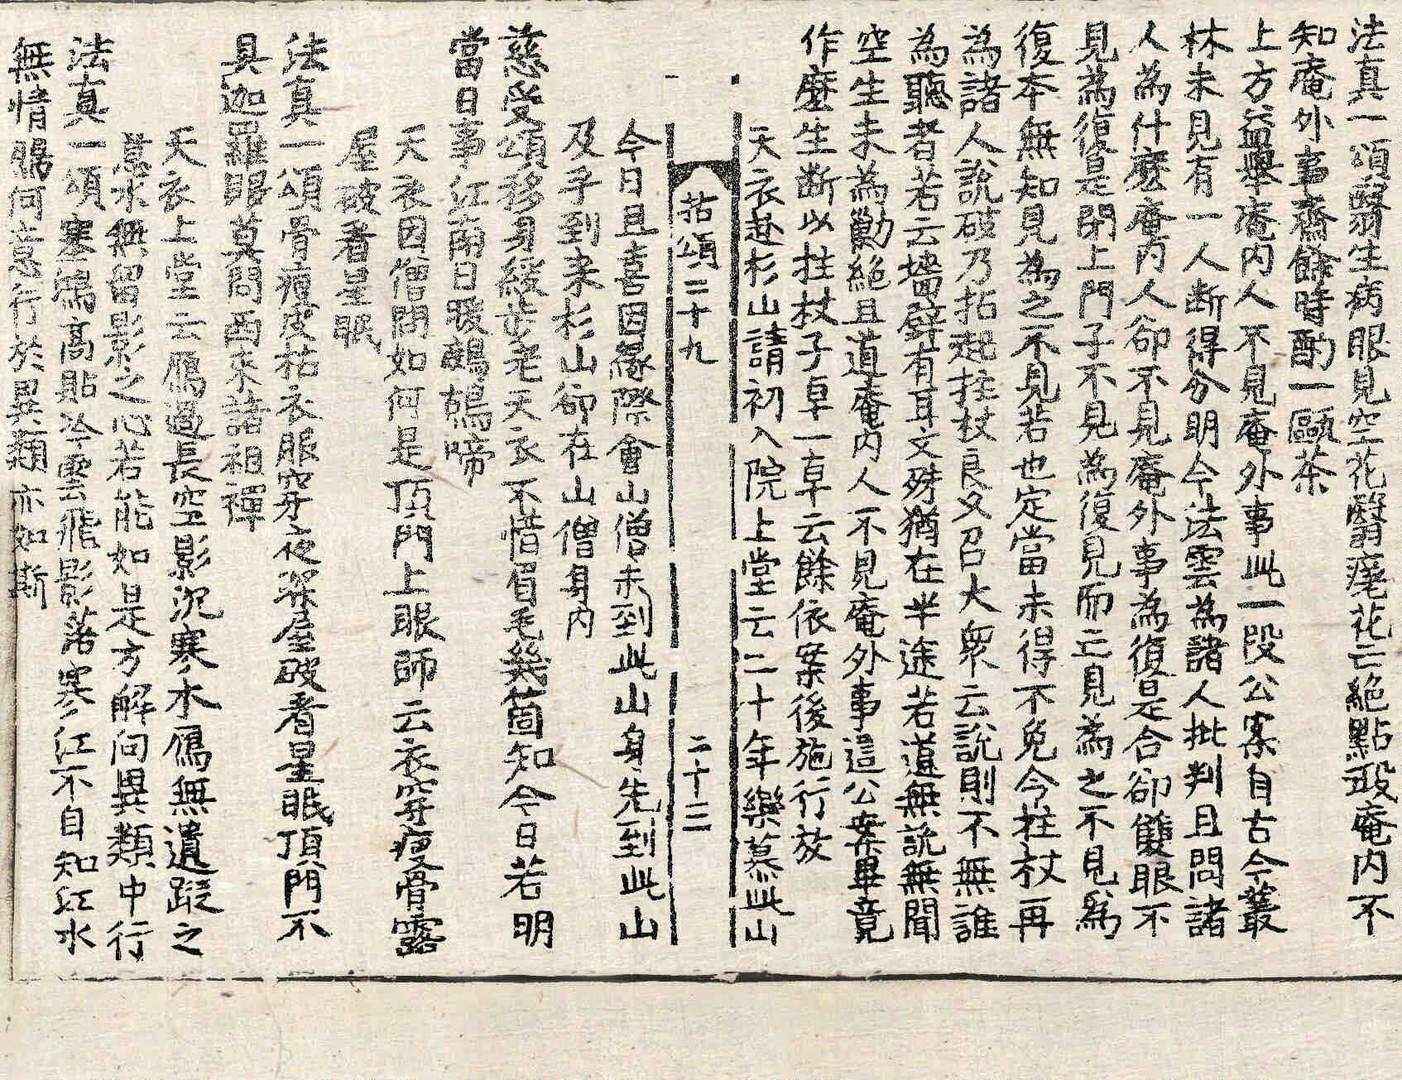 法真一頌翳生病眼見空花翳瘥花亡絕點瑕庵內不
知庵外事齋餘時酌一甌茶
上方益舉庵內人不見庵外事此一段公案自古今叢
林未見有一人斷得分明今法雲為諸人批判且問諸
人為什麼庵內人卻不見庵外事為復是合卻雙眼不
見為復是閉上門子不見為復見而亡見為之不見為
復本無知見為之不見若也定當未得不免今拄杖再
為諸人說破乃拈起拄杖良久召大眾云說則不無誰
為聽者若云墻壁有耳文殊猶在半途若道無說無聞
空生未為勦絕且道庵內人不見庵外事這公案畢竟
作麼生斷以拄杖子卓一卓云餘依案後施行放
天衣赴杉山請初入院上堂云二十年樂慕此山
拈頌二十九 二十三
今日且喜因緣際會山僧未到此山身先到此山
及乎到来杉山卻在山僧身內
慈受頌移身綏步老天衣不惜眉毛幾箇知今日若明
當日事江南日暖鷓鴣啼
天衣因僧問如何是頂門上眼師云衣穿瘦骨露
屋破看星眠
法真一頌骨瘦皮枯衣服穿夜深屋破看星眠頂門不
具迦羅眼莫問西來諸祖禪
天衣上堂云鴈過長空影沉寒水鴈無遺蹤之
意水無留影之心若能如是方解向異類中行
法真一頌塞鴻高貼冷雲飛影落寒江不自知江水
無情鴈何意行於異類亦如斯